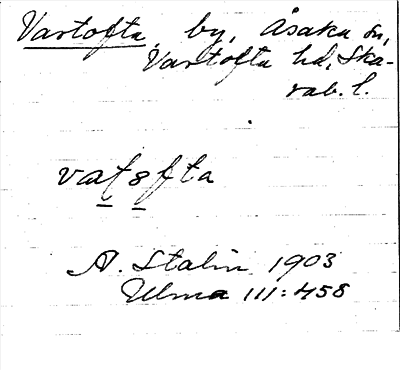 Vartofta, by, Åsaka sn,
Vartofta hd, Ska-
rab. l.
vatofta
A. Stalin 1903
Ulma 111:458